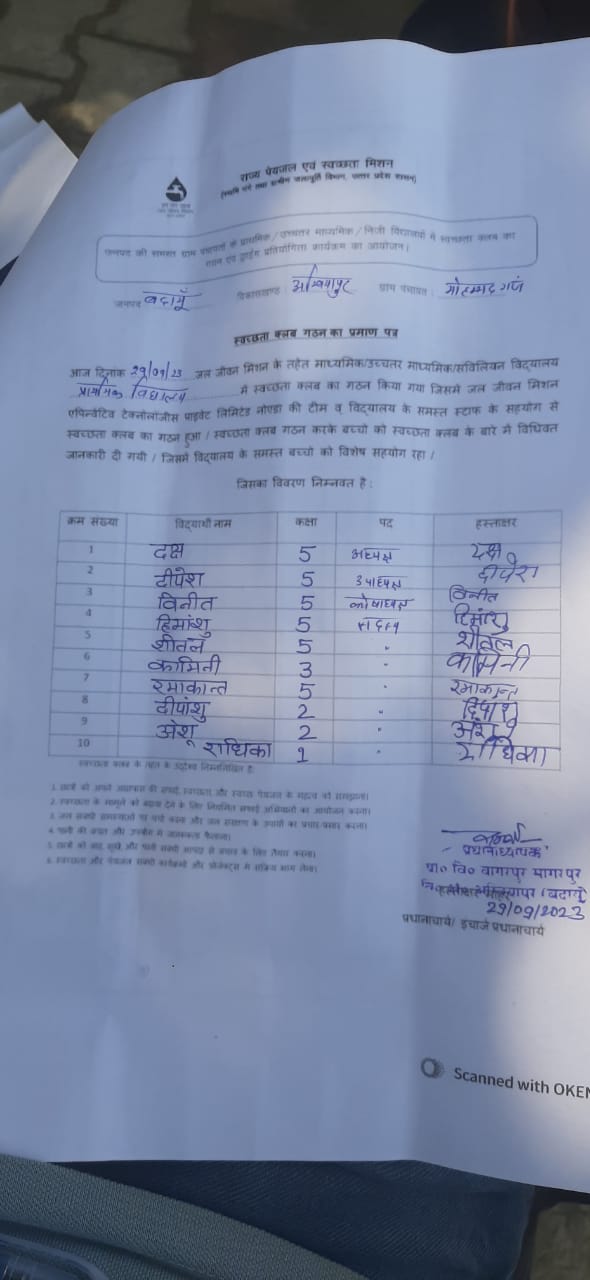 राज्य पेयजल एवं स्वच्छता मिशन
(नमामि गंगे तथा ग्रामीण जलापूर्ति विभाग, उत्तर प्रदेश शासन)
जनपद की समस्त ग्राम पंचायतों के प्राथमिक/उच्चतर माध्यमिक/निजी विद्यालयों में स्वच्छता क्लब का
गठन एवं ड्राईंग प्रतियोगिता कार्यक्रम का आयोजन।
जनपद बदायूँ विकासखण्ड : अम्बियापुर ग्राम पंचायत : मोहम्मद गंज
स्वच्छता क्लब गठन का प्रमाण पत्र
आज दिनांक 29/09/23 जल जीवन मिशन के तहत माध्यमिक/उच्चतर माध्यमिक/संविलियन विद्यालय
प्राथमिक विद्यालय में स्वच्छता क्लब का गठन किया गया जिसमे जल जीवन मिशन
एपिन्वेंटिव टेक्नोलॉजीस प्राइवेट लिमिटेड नोएडा की टीम व् विद्यालय के समस्त स्टाफ के सहयोग से
स्वच्छता क्लब का गठन हुआ / स्वच्छता क्लब गठन करके बच्चो को स्वच्छता क्लब के बारे में विधिवत
जानकारी दी गयी / जिसमे विद्यालय के समस्त बच्चो को विशेष सहयोग रहा /
जिसका विवरण निम्नवत है :
क्रम संख्या विद्यार्थी नाम कक्षा पद हस्ताक्षर
1 दक्ष 5 अध्यक्ष दक्ष
2 दीपेश 5 उपाध्यक्ष दीपेश
3 विनीत 5 कोषाध्यक्ष विनीत
4 हिमांशु 5 सदस्य हिमांशु
5 शीतल 5 " शीतल
6 कामिनी 3 " कामिनी
7 रमाकान्त 5 " रमाकान्त
8 दीपांशु 2 "
9 अंशू 2 "
10 राधिका 1 " राधिका
स्वच्छता क्लब के तहत के उद्देश्य निम्नलिखित है:
1. छात्रों को अपने आसपास की सफाई, स्वच्छता और स्वच्छ पेयजल के महत्व को समझाना।
2. स्वच्छता के मामूले को बढ़ावा देने के लिए नियमित सफाई अभियानों का आयोजन करना।
3. जल संबंधी समस्याओं पर चर्चा करना और जल संरक्षण के उपायों का प्रचार-प्रसार करना।
4. पानी की बचत और उपयोग में जागरूकता फैलाना।
5. छात्रों को बाढ़, सूखे, और पानी संबंधी आपदा से बचाव के लिए तैयार करना।
6. स्वच्छता और पेयजल संबंधी कार्यक्रमों और प्रोजेक्ट्स में सक्रिय भाग लेना।
प्रधानाध्यापक
प्रा० वि० बागरपुर सागरपुर
अम्बियापुर (बदायूँ)
29/09/2023
प्रधानाचार्य/ इंचार्ज प्रधानाचार्य
Scanned with OKEN